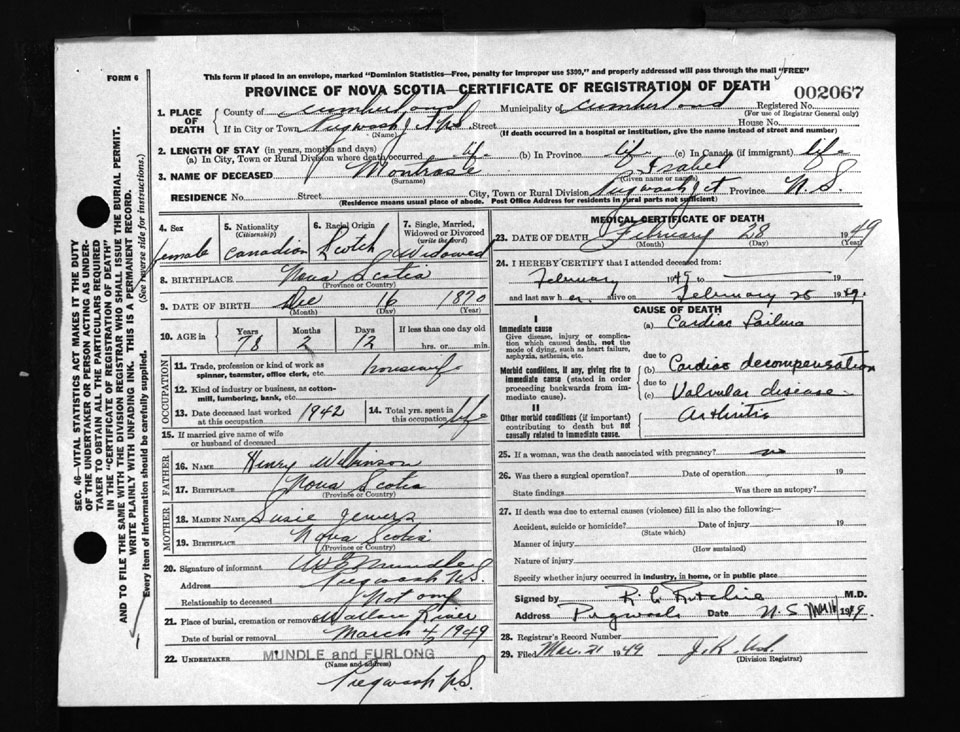 FORM 6
This form if placed in an envelope, marked "Dominion Statistics—Free, penalty for improper use $300," and properly addressed will pass through the mail "FREE"
PROVINCE OF NOVA SCOTIA—CERTIFICATE OF REGISTRATION OF DEATH 002067
1. PLACE OF DEATH County of Cumberland Municipality of Cumberland Registered No.
(For use of Registrar General only)
If in City or Town Pugwash Jct N.S. Street House No.
(Name) (If death occurred in a hospital or institution, give the name instead of street and number)
2. LENGTH OF STAY (in years, months and days)
(a) In City, Town or Rural Division where death occurred life (b) In Province life (c) In Canada (if immigrant) life
3. NAME OF DECEASED Montrose Isabel
(Surname) (Given name or names)
RESIDENCE No. Street City, Town or Rural Division Pugwash Jct Province N.S.
(Residence means usual place of abode. Post Office Address for residents in rural parts not sufficient)
4. Sex female
5. Nationality (Citizenship) Canadian
6. Racial Origin Scotch
7. Single, Married, Widowed or Divorced (write the word) Widowed
8. BIRTHPLACE Nova Scotia
(Province or Country)
9. DATE OF BIRTH Dec 16 1870
(Month) (Day) (Year)
10. AGE in Years Months Days If less than one day old
78 2 12 hrs. or min.
11. Trade, profession or kind of work as spinner, teamster, office clerk, etc. housewife
12. Kind of industry or business, as cotton-mill, lumbering, bank, etc.
13. Date deceased last worked at this occupation 1942
14. Total yrs. spent in this occupation life
15. If married give name of wife or husband of deceased
FATHER
16. NAME Henry Wilkinson
17. BIRTHPLACE Nova Scotia
(Province or Country)
MOTHER
18. MAIDEN NAME Susie Jewers
19. BIRTHPLACE Nova Scotia
(Province or Country)
20. Signature of informant Mundle
Address Pugwash N.S.
Relationship to deceased Not any
21. Place of burial, cremation or removal Wallace River
Date of burial or removal March 4 1949
22. UNDERTAKER MUNDLE and FURLONG
(Name and address)
Pugwash N.S.
MEDICAL CERTIFICATE OF DEATH
23. DATE OF DEATH February 28 1949
(Month) (Day) (Year)
24. I HEREBY CERTIFY that I attended deceased from:
February 1949 to 19
and last saw her alive on February 28 1949.
CAUSE OF DEATH
I
Immediate cause
Give disease, injury or complication which caused death, not the mode of dying, such as heart failure, asphyxia, asthenia, etc.
(a) Cardiac Failure
due to
Morbid conditions, if any, giving rise to immediate cause (stated in order proceeding backwards from immediate cause).
(b) Cardiac decompensation
due to
(c) Valvular disease
II
Other morbid conditions (if important) contributing to death but not causally related to immediate cause.
Arthritis
25. If a woman, was the death associated with pregnancy? no
26. Was there a surgical operation? Date of operation 19
State findings Was there an autopsy?
27. If death was due to external causes (violence) fill in also the following:—
Accident, suicide or homicide? Date of injury 19
(State which)
Manner of injury
(How sustained)
Nature of injury
Specify whether injury occurred in industry, in home, or in public place
Signed by R C Ritchie M.D.
Address Pugwash Date N.S 1949.
28. Registrar's Record Number
29. Filed Mar. 21 1949 J. R.
(Division Registrar)
SEC. 46—VITAL STATISTICS ACT MAKES IT THE DUTY
OF THE UNDERTAKER OR PERSON ACTING AS UNDER-
TAKER TO OBTAIN ALL THE PARTICULARS REQUIRED
IN THE "CERTIFICATE OF REGISTRATION OF DEATH"
AND TO FILE THE SAME WITH THE DIVISION REGISTRAR WHO SHALL ISSUE THE BURIAL PERMIT.
WRITE PLAINLY WITH UNFADING INK. THIS IS A PERMANENT RECORD.
Every item of information should be carefully supplied. (See reverse side for instructions.)